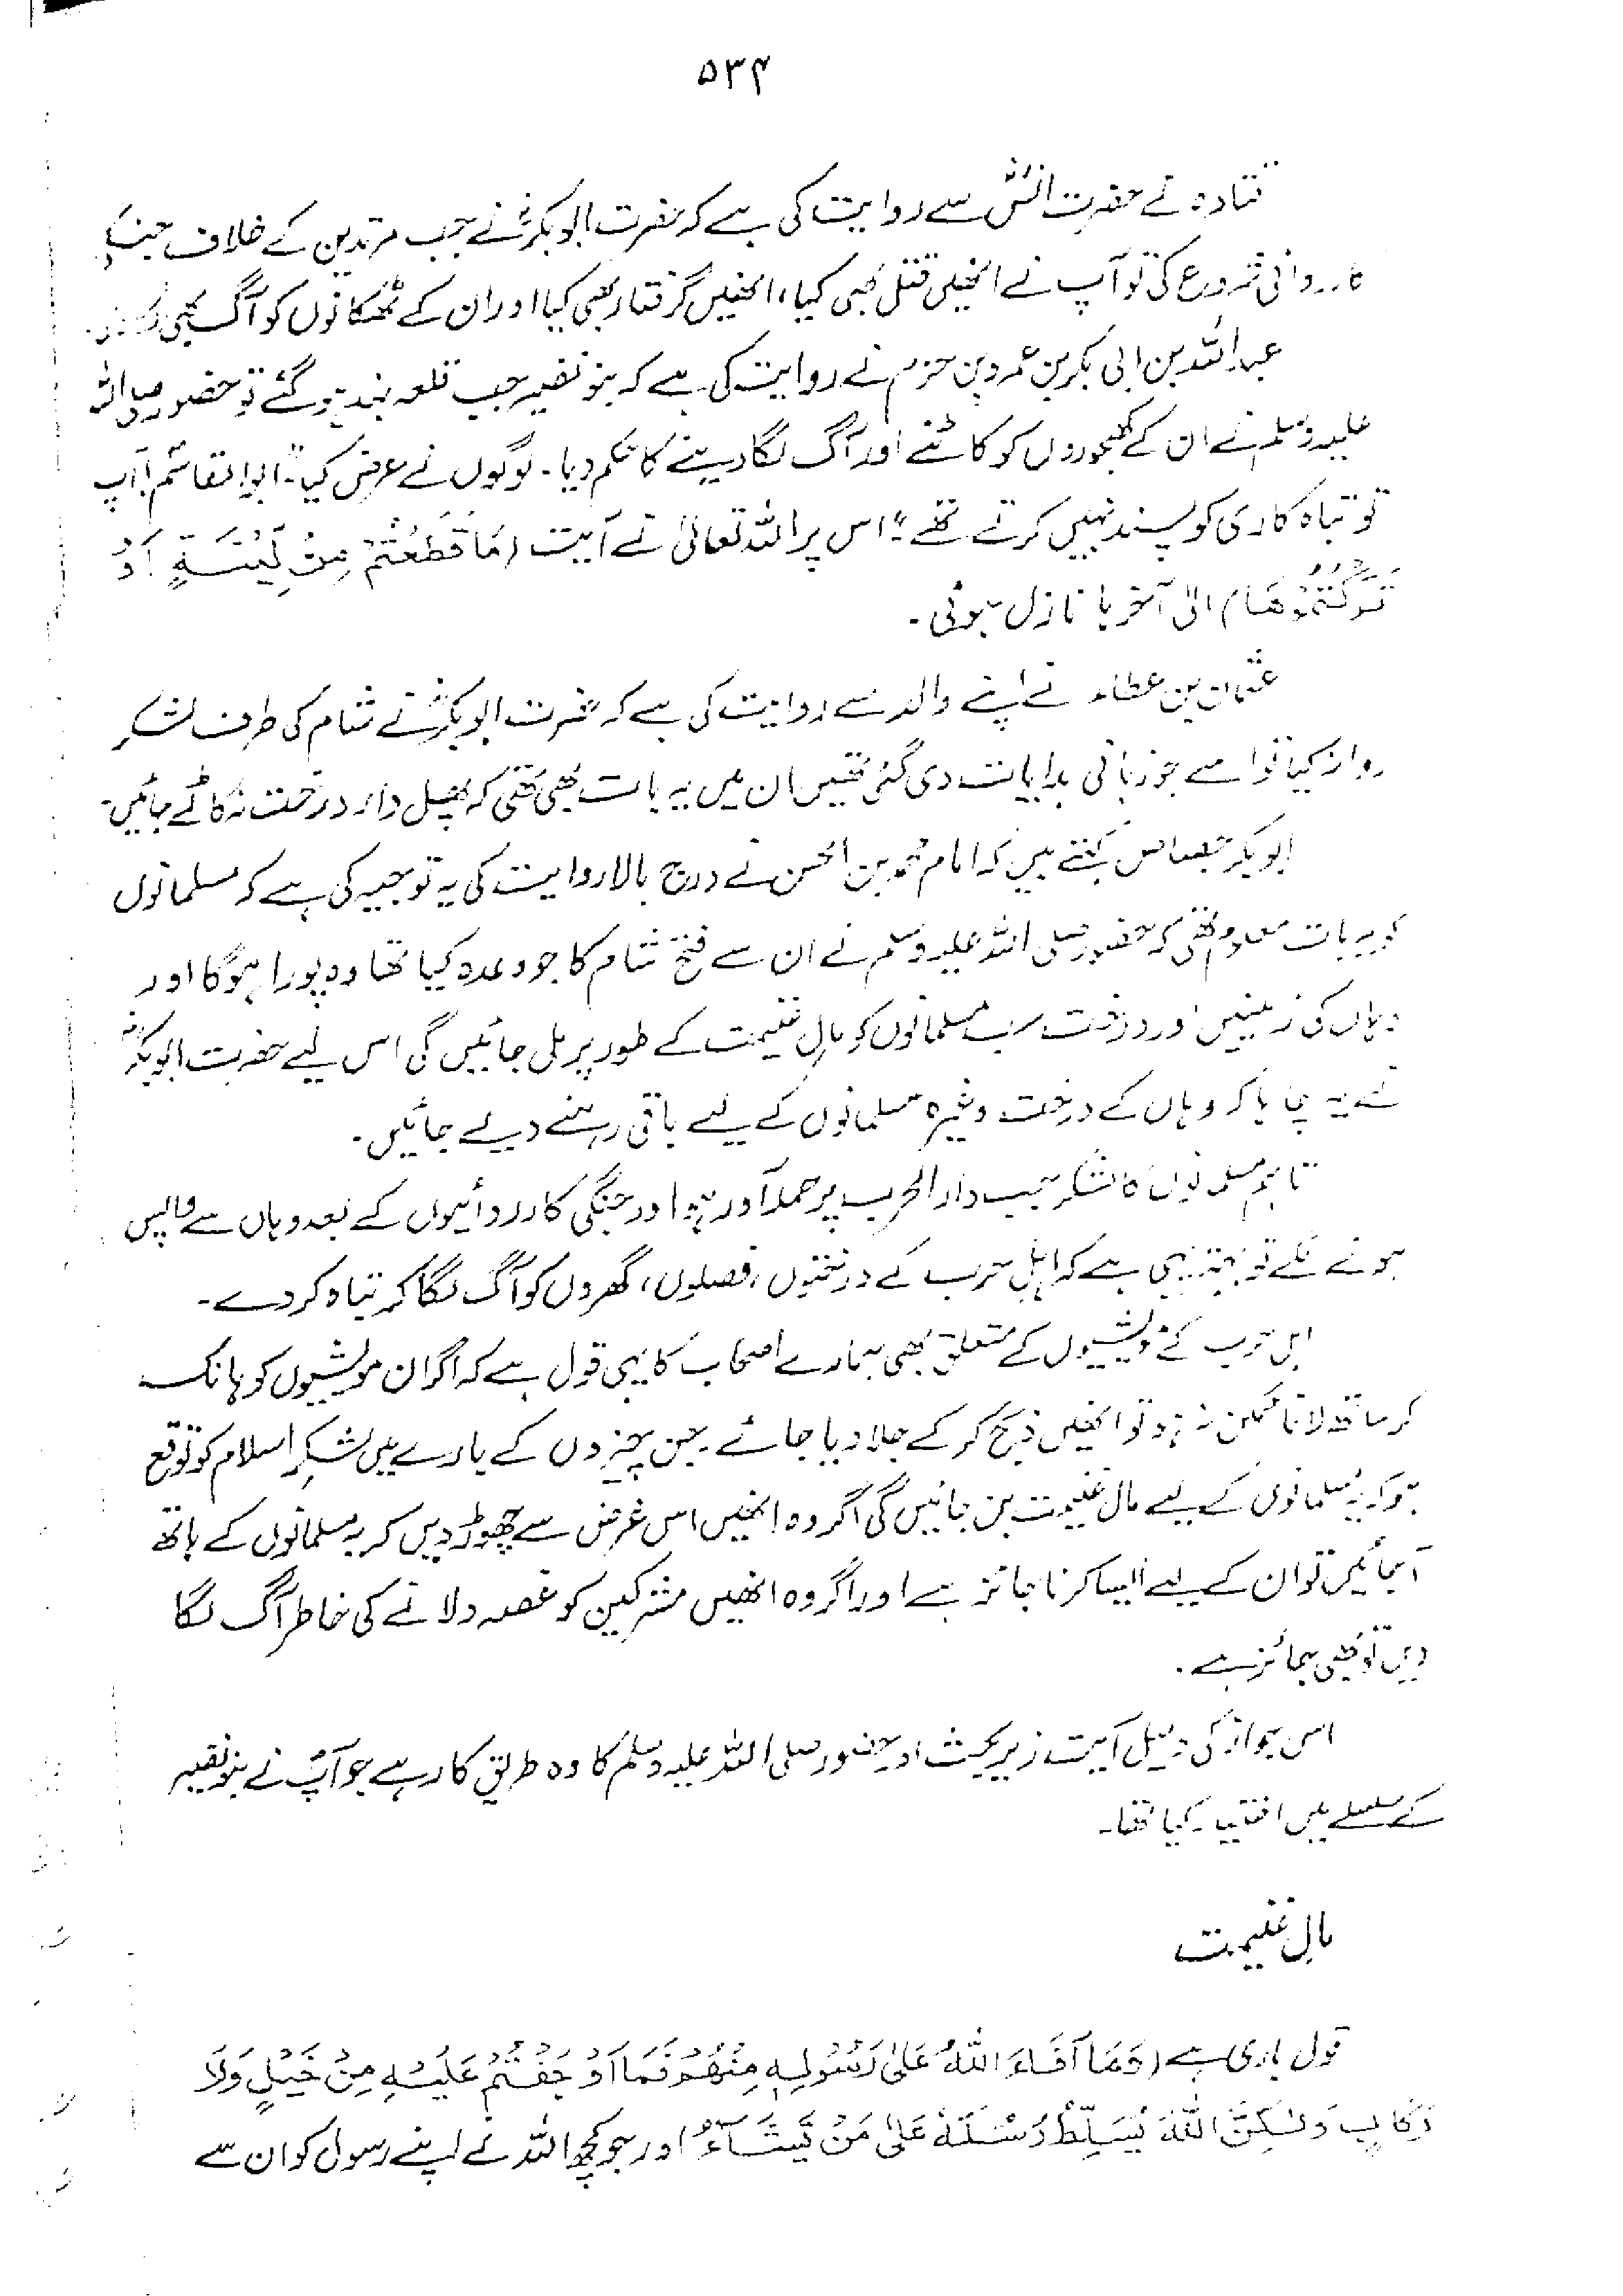 ۵۳۴
قتادہ نے حضرت انسؓ سے روایت کی ہے کہ حضرت ابوبکرؓ نے جب مرتدین کے خلاف جنگی
کارروائی شروع کی تو آپ نے انھیں قتل بھی کیا، انھیں گرفتار بھی کیا اور ان کے ٹھکانوں کو آگ بھی
عبداللہ بن ابی بکر بن عمرو بن حزم نے روایت کی ہے کہ بنو نضیر جب قلعہ بند ہو گئے تو حضور صلی اللہ
علیہ وسلم نے ان کے کھجوروں کو کاٹنے اور آگ لگا دینے کا حکم دیا۔ لوگوں نے عرض کیا۔" ابوالقاسمؐ! آپ
تو تباہ کاری کو پسند نہیں کرتے تھے" اس پر اللہ تعالیٰ نے آیت (مَا قَطَعْتُمْ مِنْ لِیْنَۃٍ اَوْ
تَرَکْتُمُوْھَا) الیٰ آخر ہا نازل ہوئی۔
عثمان بن عطاء نے اپنے والد سے روایت کی ہے کہ حضرت ابوبکرؓ نے شام کی طرف لشکر
روانہ کیا تو اسے جو زبانی ہدایات دی گئی تھیں ان میں یہ بات بھی تھی کہ پھل دار درخت نہ کاٹے جائیں۔
ابوبکر جصاص کہتے ہیں کہ امام محمد بن الحسن نے درج بالا روایت کی یہ توجیہ کی ہے کہ مسلمانوں
کو یہ بات معلوم تھی کہ حضور صلی اللہ علیہ وسلم نے ان سے فتح شام کا جو وعدہ کیا تھا وہ پورا ہوگا اور
وہاں کی زمینیں اور درخت سب مسلمانوں کو مالِ غنیمت کے طور پر مل جائیں گی اس لیے حضرت ابوبکرؓ
نے یہ چاہا کہ وہاں کے درخت وغیرہ مسلمانوں کے لیے باقی رہنے دیے جائیں۔
تاہم مسلمانوں کا لشکر جب دارالحرب پر حملہ آور ہو اور جنگی کارروائیوں کے بعد وہاں سے واپس
ہونے لگے تو بہتر یہی ہے کہ اہلِ حرب کے درختوں، فصلوں، گھروں کو آگ لگا کر تباہ کر دے۔
اہل حرب کے مویشیوں کے متعلق بھی ہمارے اصحاب کا یہی قول ہے کہ اگر ان مویشیوں کو ہانک
کر ساتھ لانا ممکن نہ ہو تو انھیں ذبح کر کے جلا دیا جائے۔ جن چیزوں کے بارے میں لشکرِ اسلام کو توقع
ہو کہ یہ مسلمانوں کے لیے مال غنیمت بن جائیں گی اگر وہ انھیں اس غرض سے چھوڑ دیں کہ یہ مسلمانوں کے ہاتھ
آجائیں تو ان کے لیے ایسا کرنا جائز ہے اور اگر وہ انھیں مشرکین کو غصہ دلانے کی خاطر آگ لگا
دیں تو بھی جائز ہے۔
اس جواز کی دلیل آیت زیر بحث اور حضور صلی اللہ علیہ وسلم کا وہ طریق کار ہے جو آپؐ نے بنو نضیر
کے سلسلے میں اختیار کیا تھا۔
مالِ غنیمت
قول باری ہے (وَمَا اَفَاءَ اللّٰہُ عَلٰی رَسُوْلِہٖ مِنْھُمْ فَمَا اَوْجَفْتُمْ عَلَیْہِ مِنْ خَیْلٍ وَّلَا
رِکَابٍ وَلٰکِنَّ اللّٰہَ یُسَلِّطُ رُسُلَہٗ عَلٰی مَنْ یَّشَآءُ اور جو کچھ اللہ نے اپنے رسول کو ان سے